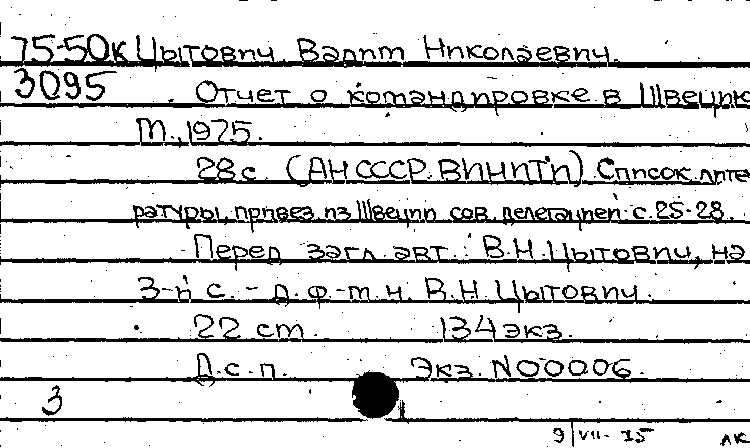 75-50к Цытович, Вадим Николаевич.
3095 Отчет о командировке в Швецию
М., 1975.
28 с. (АН СССР. ВИНИТИ) Список лите
ратуры, привез. из Швеции сов. делегацией: с. 25-28.
Перед загл. авт.: В.Н. Цытович, на
3-й с. - д.ф.-м.н. В.Н. Цытович.
22 см. 134 экз.
Д.с.п. Экз. N00006.
3
9/VII-75 ЛК